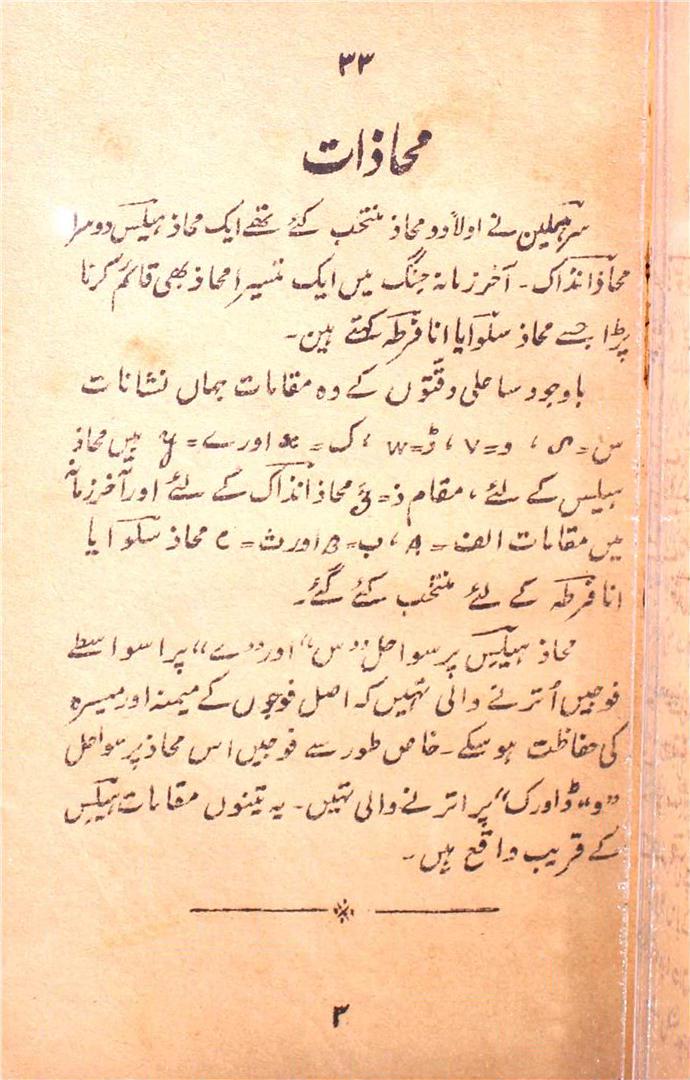 ۳۳
محاذات
سرہملین نے اولاً دو محاذ منتخب کئے تھے ایک محاذ ہیلس دوسرا
محاذ انذاک ۔ آخر زمانہ جنگ میں ایک تیسرا محاذ بھی قائم کرنا
پڑا جسے محاذ سلوایا انا فرطہ کہتے ہین ۔
باوجود ساحلی دقتوں کے وہ مقامات جہاں نشانات
س = S ، و = V ، ڈ = W ، ک = X اور ے = Y ہیں محاذ
ہیلس کے لئے ، مقام ذ = Z محاذ انذاک کے لئے اور آخر زمانہ
میں مقامات الف = A ، ب = B اور ث = C محاذ سلوایا
انا فرطہ کے لئے منتخب کئے گئے ۔
محاذ ہیلس پر سواحل ”س“ اور ”ے“ پر اسواسطے
فوجیں اُترنے والی تھیں کہ اصل فوجوں کے میمنہ اور میسرہ
کی حفاظت ہوسکے ۔ خاص طور سے فوجیں اس محاذ پر سواحل
”و“ ڈ اور ک“ پر اترنے والی تھیں ۔ یہ تینوں مقامات ہیلس
کے قریب واقع ہیں ۔
۳